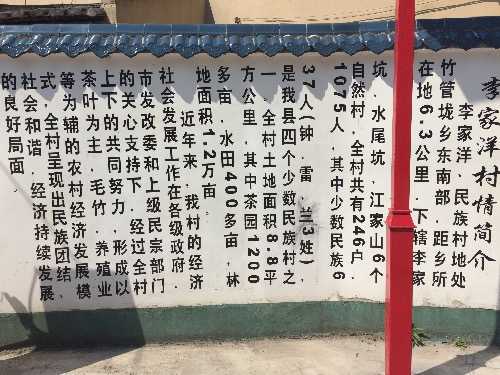 李家洋村情简介
李家洋，民族村地处
竹管垅乡东南部，距乡所
在地6.3公里，下辖李家
坑，水尾坑，江家山6个
自然村，全村共有246户，
1075人，其中少数民族6
37人(钟，雷，兰3姓)，
是我县四个少数民族村之
一，全村土地面积8.8平
方公里，其中茶园1200
多亩，水田400多亩，林
地面积1.2万亩，
近年来，我村的经济
社会发展工作在各级政府，
市发改委和上级民宗部门
的关心支持下，经过全村
上下的共同努力，形成以
茶叶为主，毛竹，养殖业
等为辅的农村经济发展模
式，全村呈现出民族团结，
社会和谐，经济持续发展
的良好局面